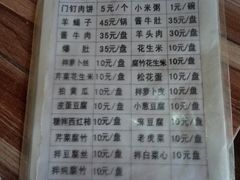 门钉肉饼 5元/个 小米粥 1元/碗
羊蝎子 45元/锅 酱牛肚 35元/盘
酱牛肉 35元/盘 羊头肉 30元/盘
爆肚 35元/盘 花生米 10元/盘
拌萝卜丝 10元/盘 腐竹花生米 10元/盘
芹菜花生米 10元/盘 松花蛋 10元/盘
拍黄瓜 10元/盘 拌萝卜皮 10元/盘
皮蛋豆腐 10元/盘 小葱豆腐 10元/盘
糖拌西红柿 10元/盘 麻豆腐 10元/盘
芹菜腐竹 10元/盘 老虎菜 10元/盘
拌豆腐丝 10元/盘 拌白菜心 10元/盘
拌焖腐竹 10元/盘